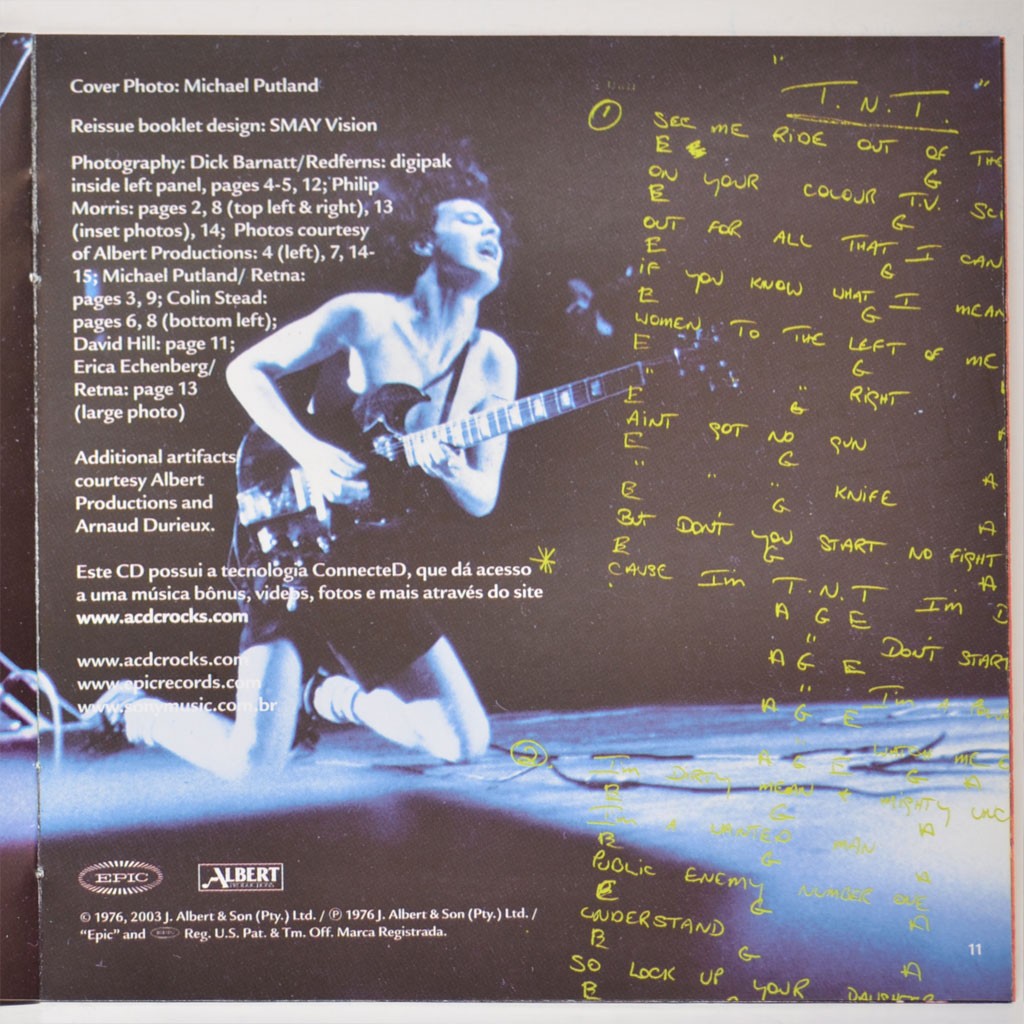 Cover Photo: Michael Putland
Reissue booklet design: SMAY Vision
Photography: Dick Barnatt/Redferns: digipak
inside left panel, pages 4-5, 12; Philip
Morris: pages 2, 8 (top left & right), 13
(inset photos), 14; Photos courtesy
of Albert Productions: 4 (left), 7, 14-
15; Michael Putland/ Retna:
pages 3, 9; Colin Stead:
pages 6, 8 (bottom left);
David Hill: page 11;
Erica Echenberg/
Retna: page 13
(large photo)
Additional artifacts
courtesy Albert
Productions and
Arnaud Durieux.
Este CD possui a tecnologia ConnecteD, que dá acesso
a uma música bônus, videos, fotos e mais através do site
www.acdcrocks.com
www.acdcrocks.com
www.epicrecords.com
www.sonymusic.com.br
EPIC
ALBERT
PRODUCTIONS
© 1976, 2003 J. Albert & Son (Pty.) Ltd. / ℗ 1976 J. Albert & Son (Pty.) Ltd. /
“Epic” and EPIC Reg. U.S. Pat. & Tm. Off. Marca Registrada.
" T.N.T. "
1 SEE ME RIDE OUT OF THE
E G
ON YOUR COLOUR T.V. SC
E G
OUT FOR ALL THAT I CAN
E G
IF YOU KNOW WHAT I MEAN
E G
WOMEN TO THE LEFT OF ME
E G
" " RIGHT
E G
AINT GOT NO GUN A
E G
" " " KNIFE A
E G
BUT DON'T YOU START NO FIGHT A
E G
CAUSE I'M T.N.T I'M D
A G E
" DON'T START
A G E
" I'M A
A G E
" WATCH ME
A G E G A
2 I'M DIRTY MEAN + MIGHTY UNC
E G A
I'M A WANTED MAN
E G A
PUBLIC ENEMY NUMBER ONE
E G A
UNDERSTAND
E G A
SO LOCK UP YOUR DAUGHTER
E G
11